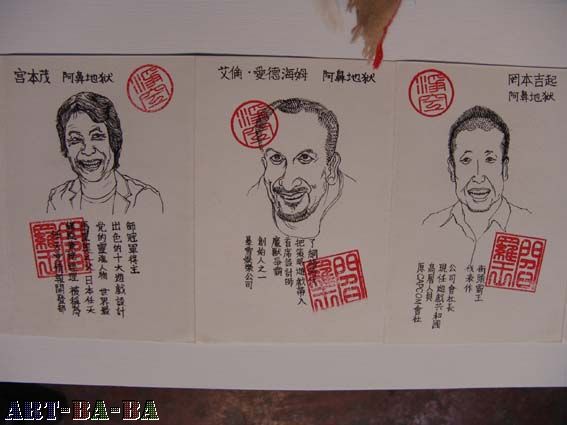 宮本茂 阿鼻地獄
情報開發部
被稱為
日本任天
堂的靈魂人物 世界最
出色的十大遊戲設計
師冠軍得主
艾倫·愛德海姆 阿鼻地獄
暴雪娛樂公司
創始人之一
魔獸爭霸
首席設計師
把策略遊戲帶入
了網
岡本吉起
阿鼻地獄
原CAPCOM會社
高層人員
現任遊戲共和國
公司會社長
代表作
街頭霸王
ART-BA-BA